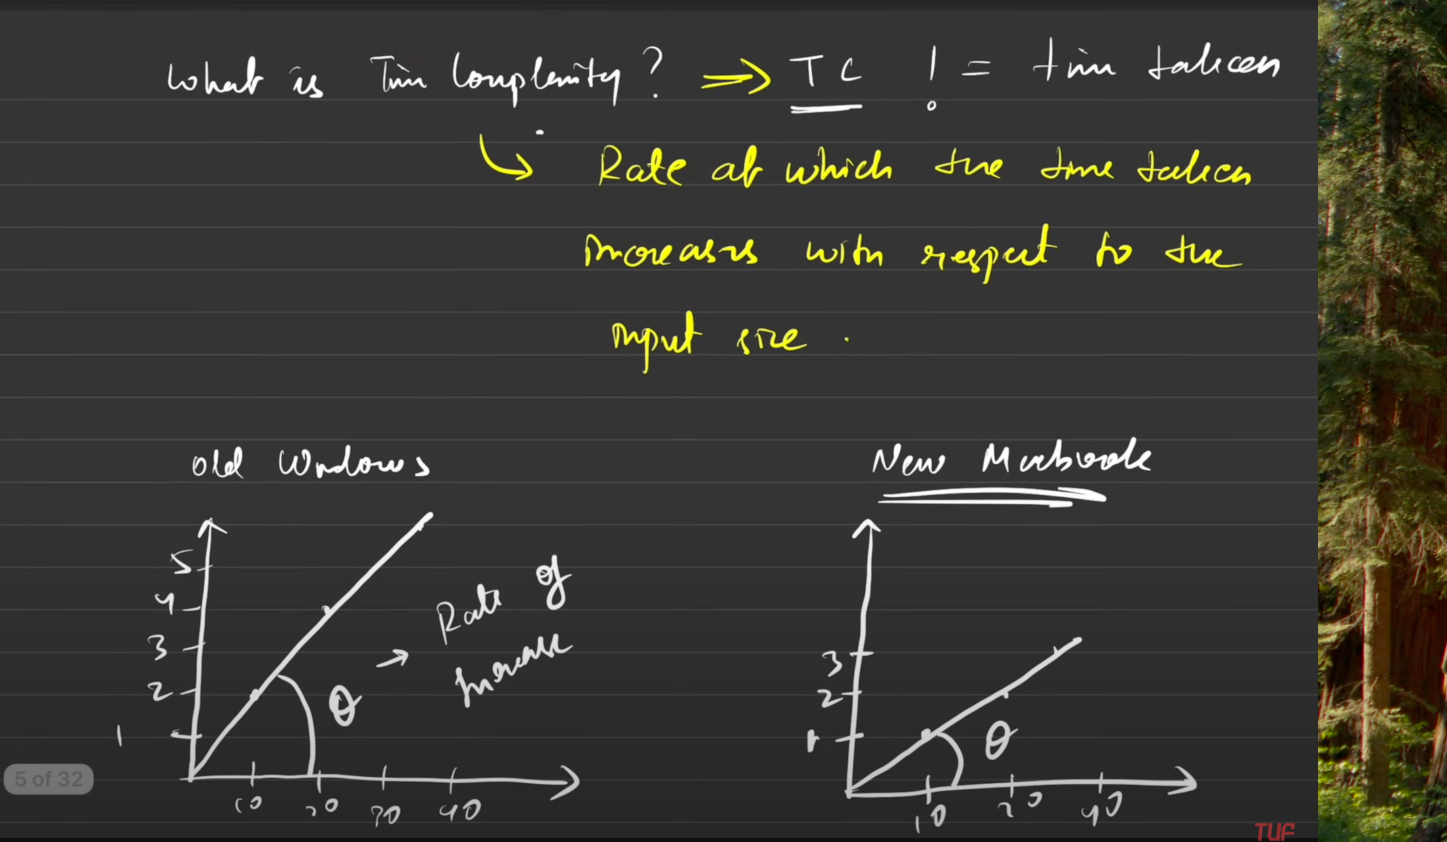 What is Time Complexity? ⇒ TC != time taken
↳ Rate at which the time taken
increases with respect to the
input size.
Old Windows
New Macbook
5
4
3
2
1
θ → Rate of
Increase
10 20 30 40
3
2
1
θ
10 20 40
5 of 32
TUF